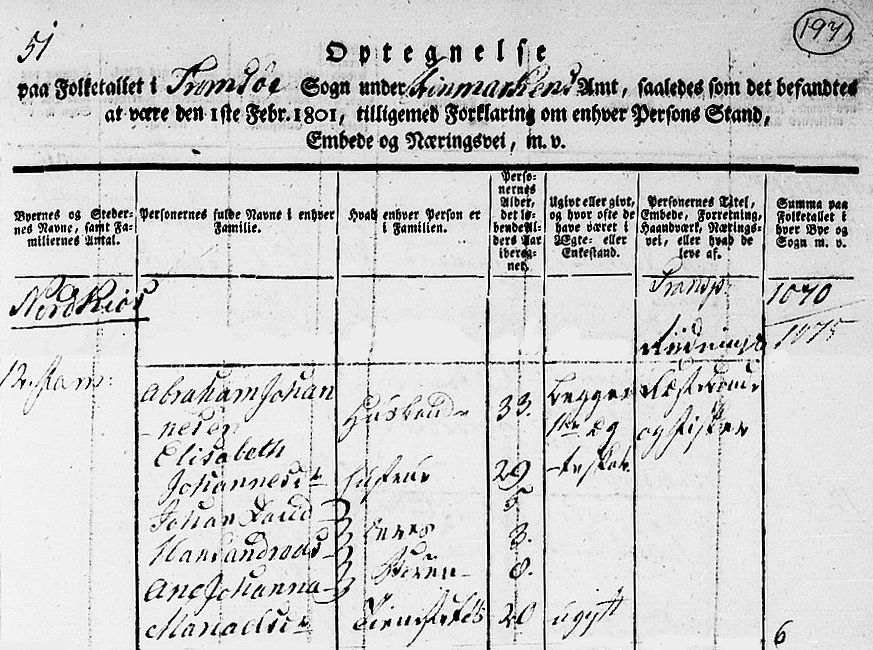 51
197
Optegnelse
paa Folketallet i Tromsöe Sogn under Finmarkens Amt, saaledes som det befandtes
at være den 1ste Febr. 1801, tilligemed Forklaring om enhver Persons Stand,
Embede og Næringsvei, m. v.
Byernes og Steder-
nes Navne, samt Fa-
miliernes Antal.
Personernes fulde Navne i enhver
Familie.
Hvad enhver Person er
i Familien.
Perso-
nernes
Alder,
det lø-
bende Al-
ders Aar
ibereg-
net.
Ugivt eller givt,
og hvor ofte de
have været i
Ægte- eller
Enkestand.
Personernes Titel,
Embede, Forretning,
Haandværk, Nærings-
vei, eller hvad de
leve af.
Summa paa
Folketallet i
hver Bye og
Sogn m. v.
Transp: 1070
1075
12 Fam:
Abraham Johan
nesen Husbonde 33. begge
1ste Æg
og Fisker
Elisabeth
Johannesd Hustrue 29 teskab
Johan 5
Hans Andreas deres 3.
Ane Johanna Børn 8.
20 ugift
6